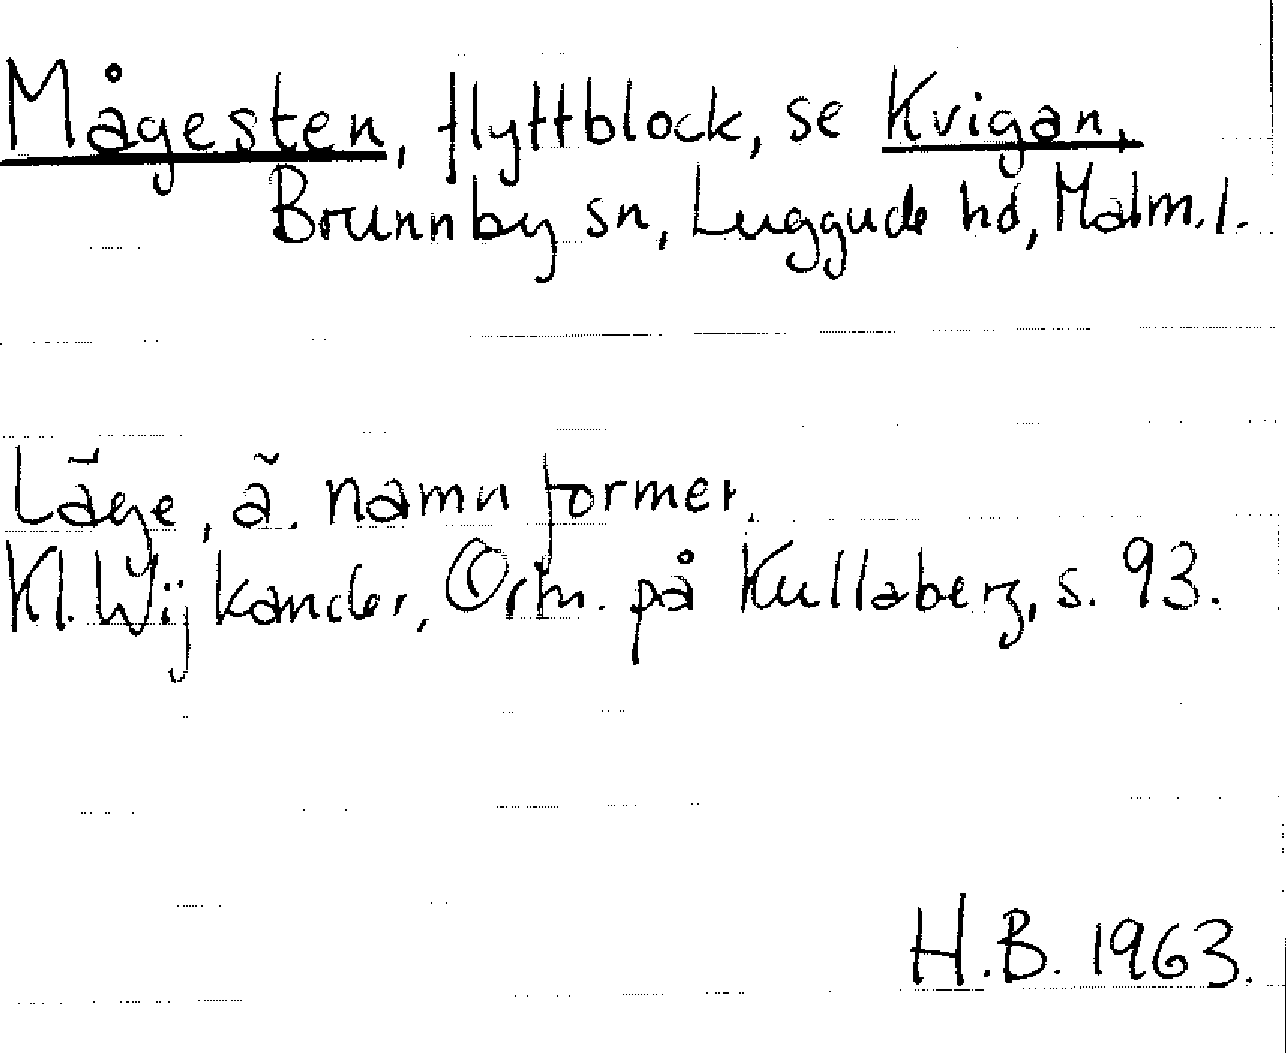 Mågesten, flyttblock, se Kvigan,
Brunnby sn, Luggude hd, Malm. l.
Läge, ä. namnformer.
Kl. Wijkander, Ortn. på Kullaberg, s. 93.
H.B. 1963.